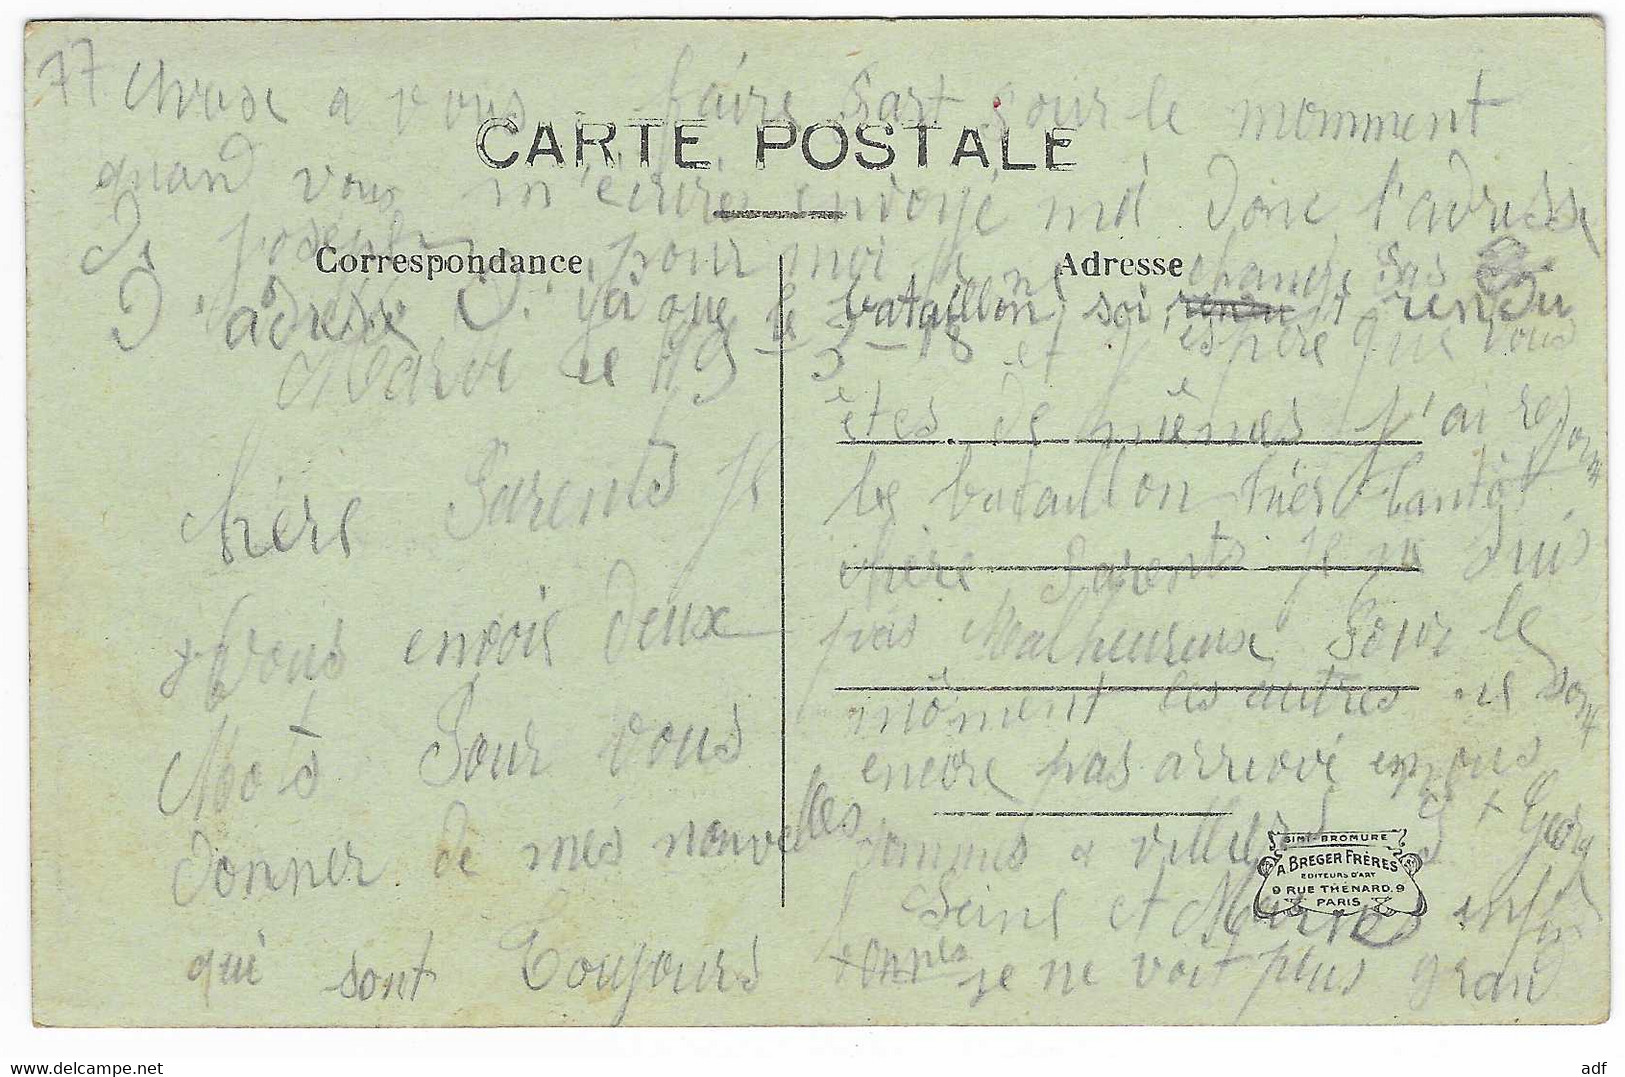 77 chose a vous faire Part pour le momment
quand vous m'écrire envoyé moi donc l'adresse
De Joseph pour moi je ne change Pas
D'adresse J. ya que le bataillon soi rendu
CARTE POSTALE
Correspondance
Adresse
Mardi le 19-3-18
chère Parents Je
Vous envois deux
Mots Pour vous
donner de mes nouvelles
qui sont Toujours
bonnes
et j'espère que vous
êtes de mêmes j'ai rejoint
le bataillon hier tantôt
chère Parents Je ne suis
pas Malheureux Pour le
môment les autres ne sont
encore pas arrivé nous
sommes a villiers St Georges
Seine et Marne enfin
je ne voit plus grand
SIMI-BROMURE
A. BREGER FRÈRES
EDITEURS D'ART
9 RUE THÉNARD, 9
PARIS
adf